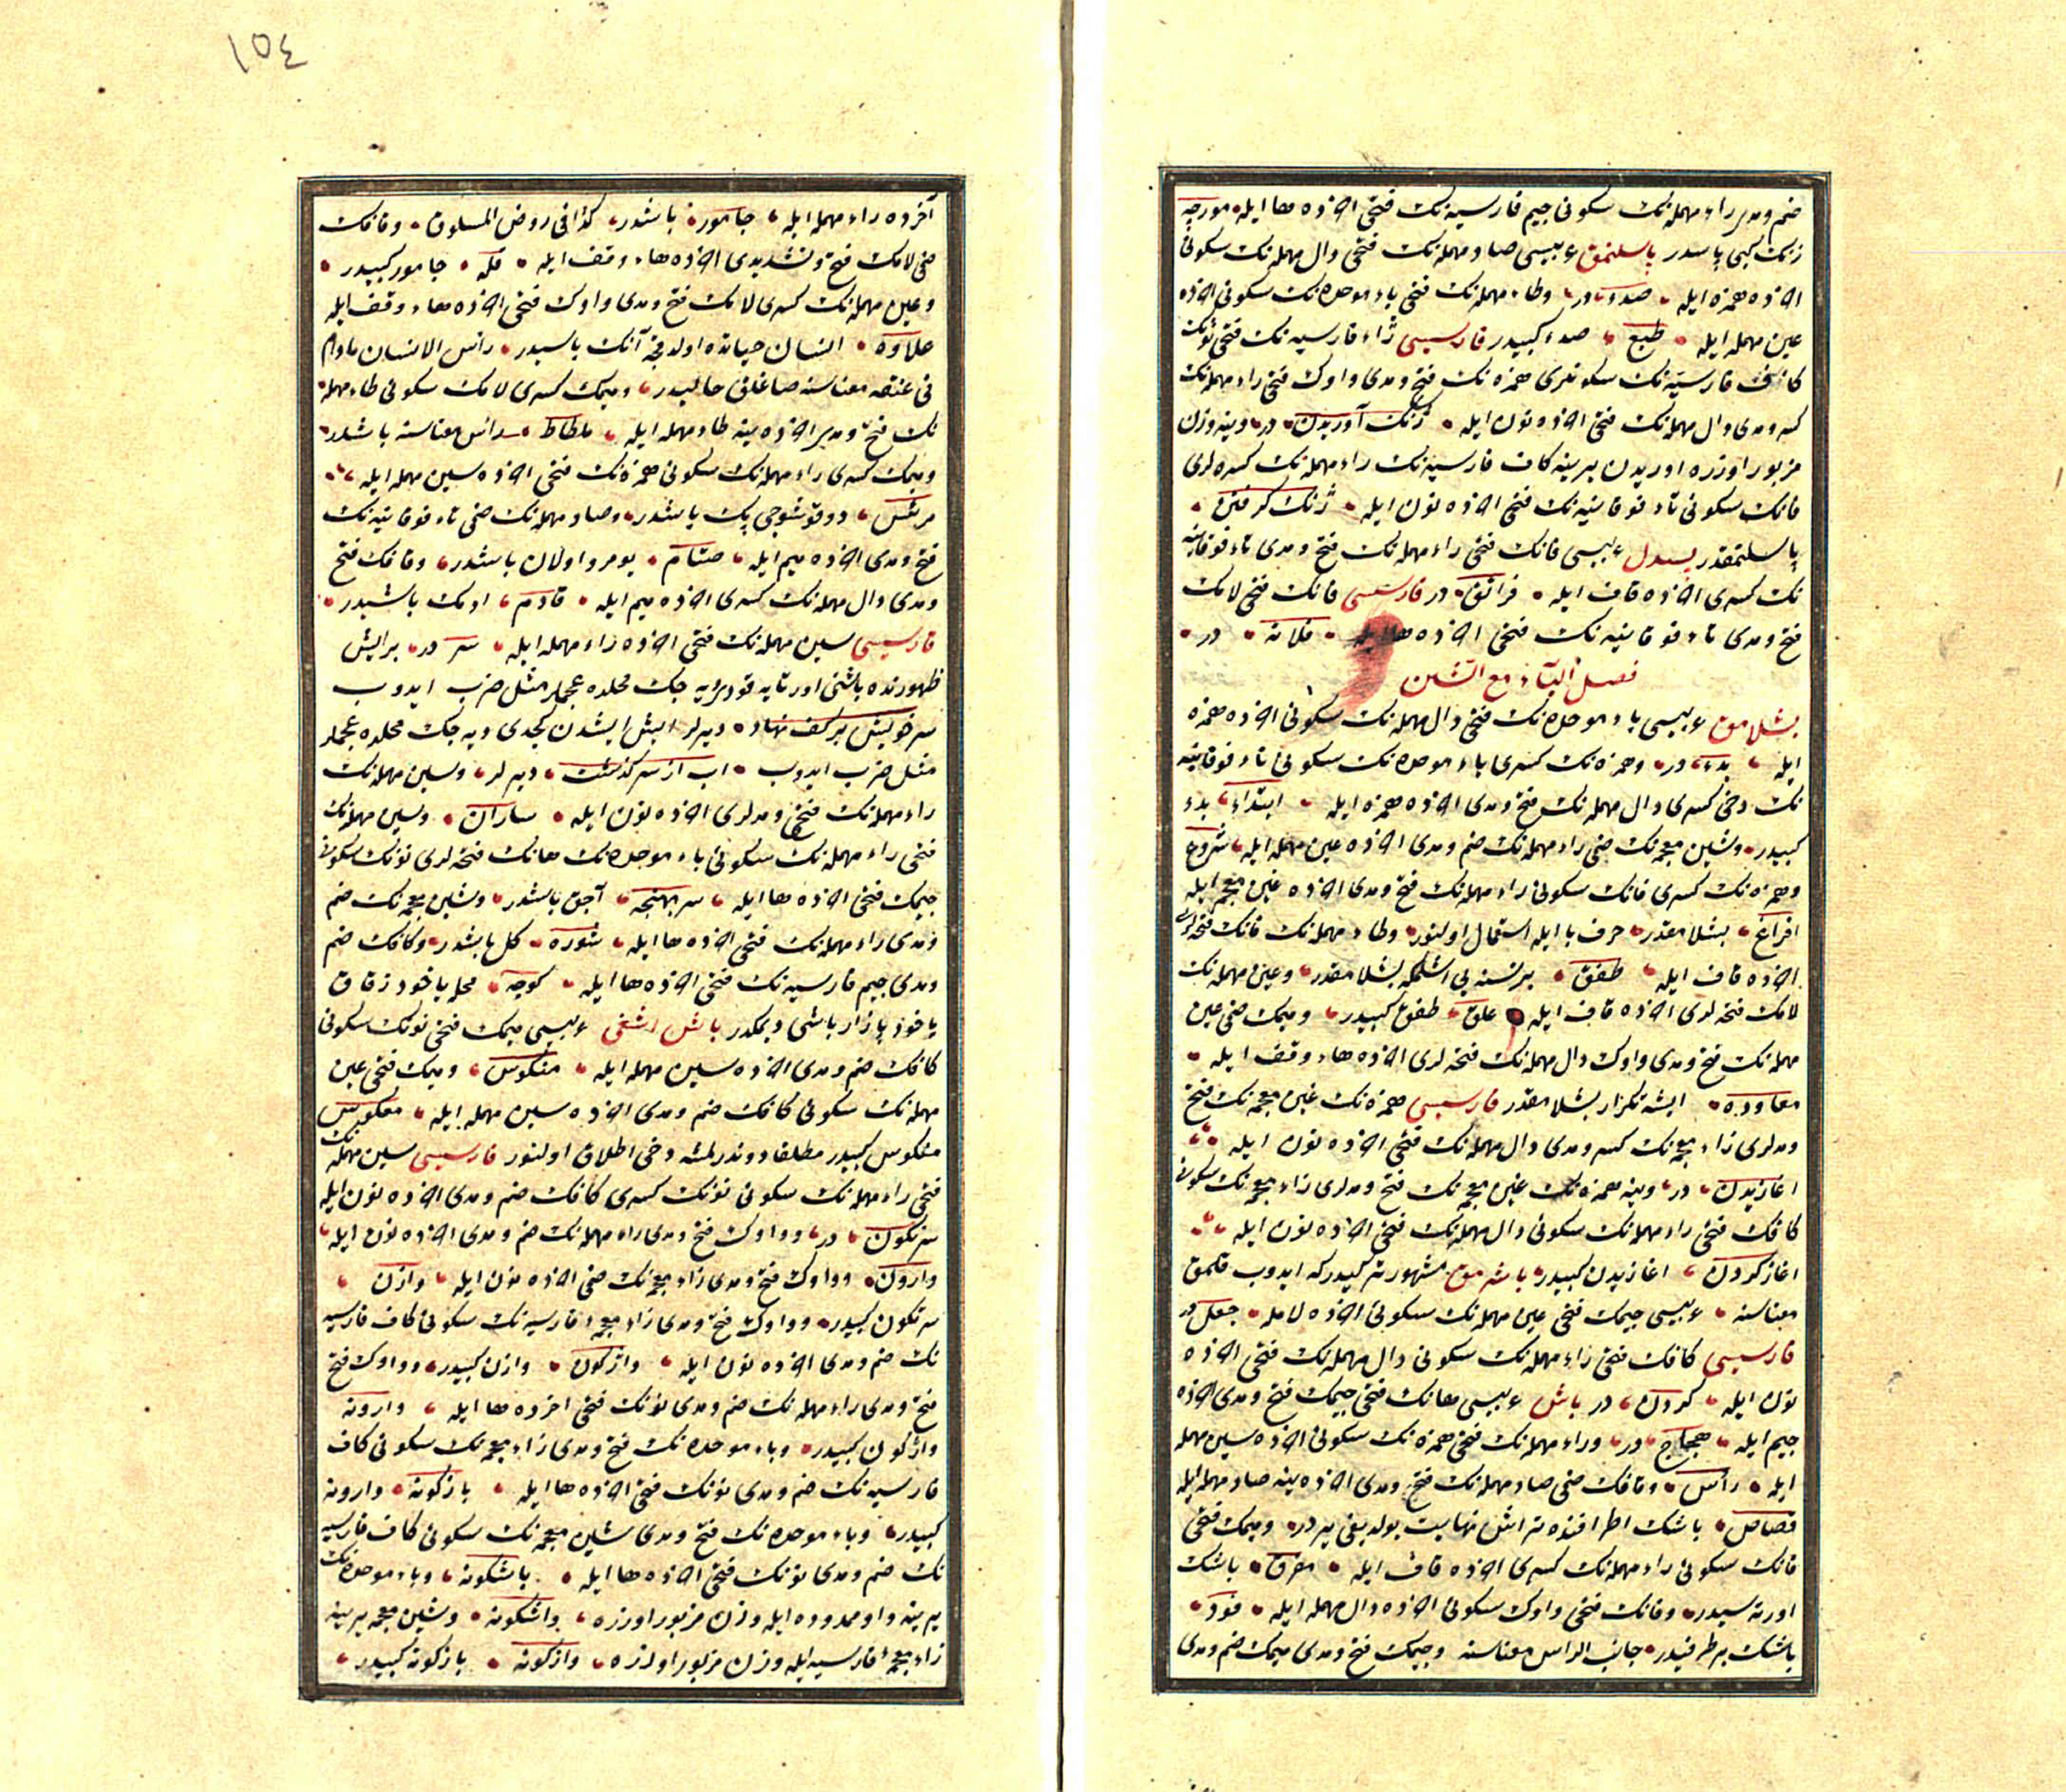 ضم ومدى راء مهمله نك سكونى جيم فارسيه نك فتحى اخرده ها ايله مورچه
ژنك كبى پاسدر پاسلنمق عربيسى صاد مهمله نك فتحى دال مهمله نك سكونى
اخرده همزه ايله صدء در وطاء مهمله نك فتحى باء موحده نك سكونى اخرده
عين مهمله ايله طبع صدء كبيدر فارسيسى ژاء فارسيه نك فتحى نونك
كاف فارسيه نك سكونلرى همزه نك فتح ومدى واوك فتحى راء مهمله نك
كسر ومدى دال مهمله نك فتحى اخرده نون ايله ژنك آوريدن در وينه وزن
مزبور اوزره اوريدن يرينه كاف فارسيه نك راء مهمله نك كسره لرى
فانك سكونى تاء فوقانيه نك فتحى اخرده نون ايله ژنك كرفتن
پاسلنمقدر پسدل عربيسى فانك فتحى راء مهمله نك فتح ومدى تاء فوقانيه
نك كسرى اخرده قاف ايله فراتق در فارسيسى فانك فتحى لامك
فتح ومدى تاء فوقانيه نك فتحى اخرده ها ايله فلاته در
فصل الباء مع الشين
بشلامق عربيسى باء موحده نك فتحى دال مهمله نك سكونى اخرده همزه
ايله بدء در وهمزه نك كسرى باء موحده نك سكونى تاء فوقانيه
نك دخى كسرى دال مهمله نك فتح ومدى اخرده همزه ايله ابتداء بدء
كبيدر وشين معجمه نك ضمى راء مهمله نك ضم ومدى اخرده عين مهمله ايله شروع
وهمزه نك كسرى فانك سكونى راء مهمله نك فتح ومدى اخرده غين معجمه ايله
افراغ بشلامقدر حرف با ايله استعمال اولنور وطاء مهمله نك فانك فتحه لرى
اخرده قاف ايله طفق بر نسنه يى اشلمكه بشلامقدر وعين مهمله نك
لامك فتحه لرى اخرده قاف ايله علق طفق كبيدر وميمك ضمى عين
مهمله نك فتح ومدى واوك دال مهمله نك فتحه لرى اخرده هاء وقف ايله
معاوده ايشه تكرار بشلامقدر فارسيسى همزه نك غين معجمه نك فتح
ومدلرى زاء معجمه نك كسر ومدى دال مهمله نك فتحى اخرده نون ايله
اغازيدن در وينه همزه نك غين معجمه نك فتح ومدلرى زاء معجمه نك سكونى
كافك فتحى راء مهمله نك سكونى دال مهمله نك فتحى اخرده نون ايله
اغاز كردن اغازيدن كبيدر باشرمق مشهور تركيدركه ايدوب قلمق
معناسنه عربيسى جيمك فتحى عين مهمله نك سكونى اخرده لامله جعل در
فارسيسى كافك فتحى راء مهمله نك سكونى دال مهمله نك فتحى اخرده
نون ايله كردن در باش عربيسى هانك فتحى جيمك فتح ومدى اخرده
جيم ايله هجاج در وراء مهمله نك فتحى همزه نك سكونى اخرده سين مهمله
ايله رأس وقافك ضمى صاد مهمله نك فتح ومدى اخرده ينه صاد مهمله ايله
قصاص باشك اطرافنده تراش نهايت بولديغى يردر وميمك فتحى
فانك سكونى راء مهمله نك كسرى اخرده قاف ايله مفرق باشك
اورته سيدر وفانك فتحى واوك سكونى اخرده دال مهمله ايله فود
باشك بر طرفيدر جانب الراس معناسنه وجيمك فتح ومدى ميمك ضم ومدى
١٥٤
آخرده راء مهمله ايله جامور باشدر كذا فى روض المسلوف وقافك
ضمى لامك فتح وتشديدى اخرده هاء وقف ايله قله جامور كبيدر
وعين مهمله نك كسرى لامك فتح ومدى واوك فتحى اخرده هاء وقف ايله
علاوه انسان حياتده اولدقجه آنك باشيدر رأس الانسان مادام
فى عنقه معناسنه صاغلق حاليدر وميمك كسرى لامك سكونى طاء مهمله
نك فتح ومدى اخرده ينه طاء مهمله ايله ملطاط رأس معناسنه باشدر
وميمك كسرى راء مهمله نك سكونى همزه نك فتحى اخرده سين مهمله ايله
مرئس دوقوشوجى پك باشدر وصاد مهمله نك ضمى تاء فوقانيه نك
فتح ومدى اخرده ميم ايله صتام يومرو اولان باشدر وقافك فتح
ومدى دال مهمله نك كسرى اخرده ميم ايله قادم اومك باشيدر
فارسيسى سين مهمله نك فتحى اخرده راء مهمله ايله سر در بر ايش
ظهورنده باشنى اورتايه قودى ديه جك محلده عجملر مثل ضرب ايدوب
سر خويش بر كف نهاد ديرلر ايش ايشدن كجدى ديه جك محلده عجملر
مثل ضرب ايدوب اب از سر كذشت ديرلر وسين مهمله نك
راء مهمله نك فتح ومدلرى اخرده نون ايله ساران وسين مهمله نك
فتحى راء مهمله نك سكونى باء موحده نك هانك فتحه لرى نونك سكونى
جيمك فتحى اخرده ها ايله سربهنجه آجق باشدر وشين معجمه نك ضم
ومدى راء مهمله نك فتحى اخرده ها ايله شوره كل باشدر وكافك ضم
ومدى جيم فارسيه نك فتحى اخرده ها ايله كوچه محله ياخود زقاق
ياخود پازار باشى ديمكدر باش اشغى عربيسى ميمك فتحى نونك سكونى
كافك ضم ومدى اخرده سين مهمله ايله منكوس وميمك فتحى عين
مهمله نك سكونى كافك ضم ومدى اخرده سين مهمله ايله معكوس
منكوس كبيدر مطلقا دوندرلمشه دخى اطلاق اولنور فارسيسى سين مهمله نك
فتحى راء مهمله نك سكونى نونك كسرى كافك ضم ومدى اخرده نون ايله
سرنكون در وواوك فتح ومدى راء مهمله نك ضم ومدى اخرده نون ايله
وارون وواوك فتح ومدى زاء معجمه نك ضمى اخرده نون ايله وازن
سرنكون كبيدر وواوك فتح ومدى زاء معجمه فارسيه نك سكونى كاف فارسيه
نك ضم ومدى اخرده نون ايله واژكون وازن كبيدر وواوك فتح
فتح ومدى راء مهمله نك ضم ومدى نونك فتحى اخرده ها ايله وارونه
واژكون كبيدر وباء موحده نك فتح ومدى زاء معجمه نك سكونى كاف
فارسيه نك ضم ومدى نونك فتحى اخرده ها ايله بازكونه وارونه
كبيدر وباء موحده نك فتح ومدى شين معجمه نك سكونى كاف فارسيه
نك ضم ومدى نونك فتحى اخرده ها ايله باشكونه وباء موحده نك
يرينه واو ممدوده ايله وزن مزبور اوزره واشكونه وشين معجمه يرينه
زاء معجمه فارسيه ايله وزن مزبور اوزره واژكونه بازكونه كبيدر